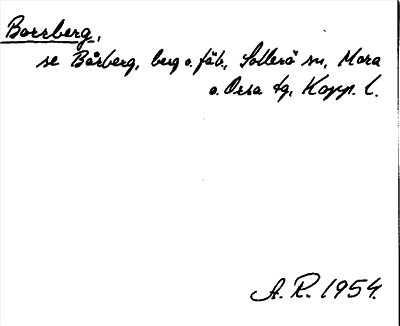 Borrberg,
se Bårberg, berg o. fäb., Sollerö sn, Mora
o. Orsa tg, Kopp. l.
A. R. 1954.